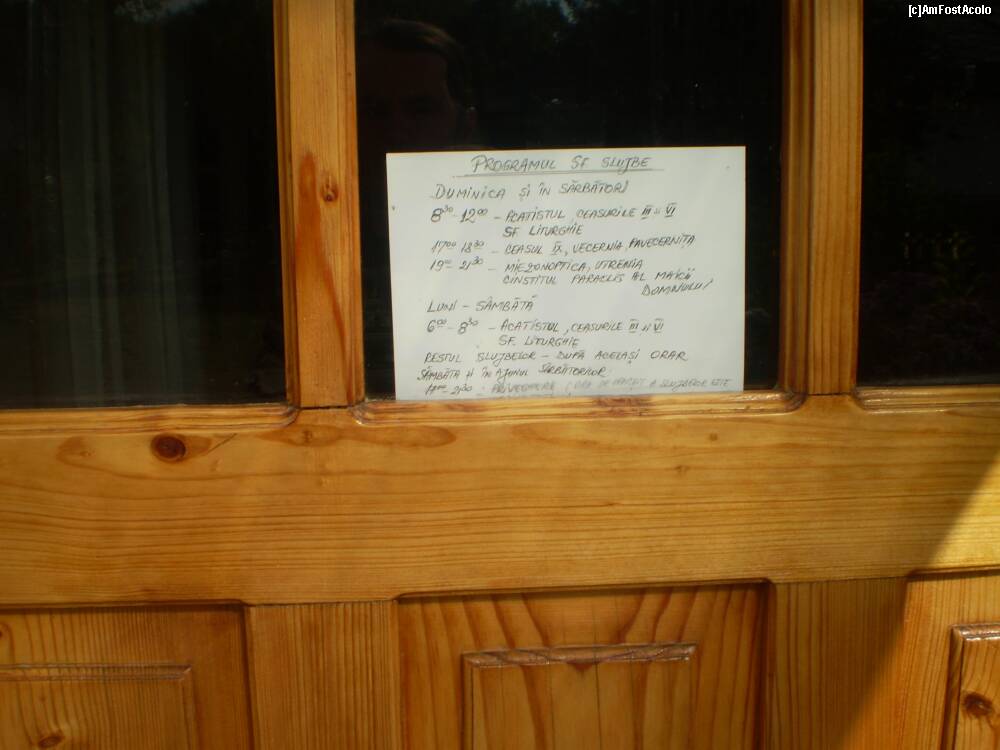 [c]AmFostAcolo
PROGRAMUL SF SLUJBE
DUMINICA ȘI ÎN SĂRBĂTORI
8³⁰-12⁰⁰ - ACATISTUL, CEASURILE III și VI
SF LITURGHIE
17⁰⁰ 18³⁰ - CEASUL IX, VECERNIA, PAVECERNIȚA
19⁰⁰ 21³⁰ - MIEZONOPTICA, UTRENIA
CINSTITUL PARACLIS AL MAICII
DOMNULUI
LUNI - SÂMBĂTĂ
6⁰⁰-8³⁰ - ACATISTUL, CEASURILE III și VI
SF. LITURGHIE
RESTUL SLUJBELOR - DUPĂ ACELAȘI ORAR
SÂMBĂTA ȘI ÎN AJUNUL SĂRBĂTORILOR
PRIVEGHERE A SLUJBELOR ESTE